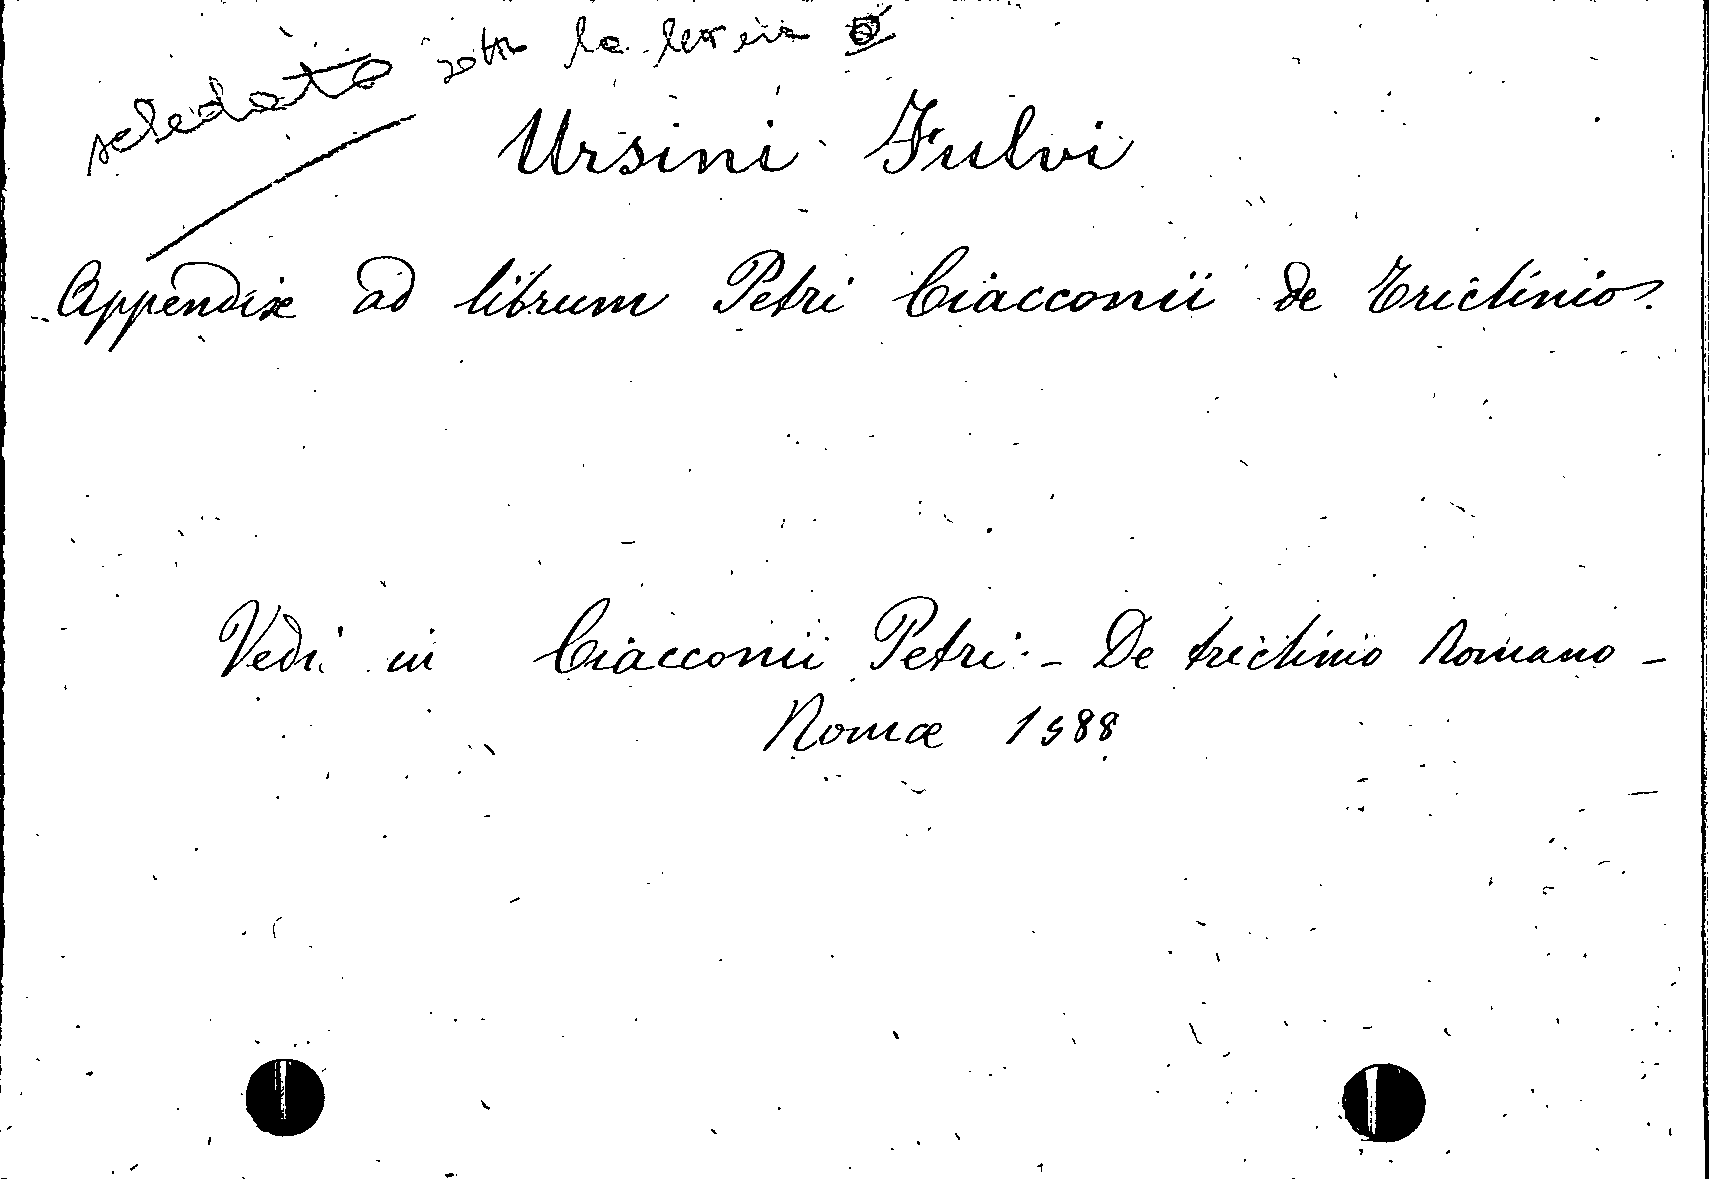 schedato sotto la lettera O
Ursini Fulvi
Appendix ad librum Petri Ciacconii de Triclinio.
Vedi in Ciacconii Petri - De triclinio Romano -
Romæ 1588